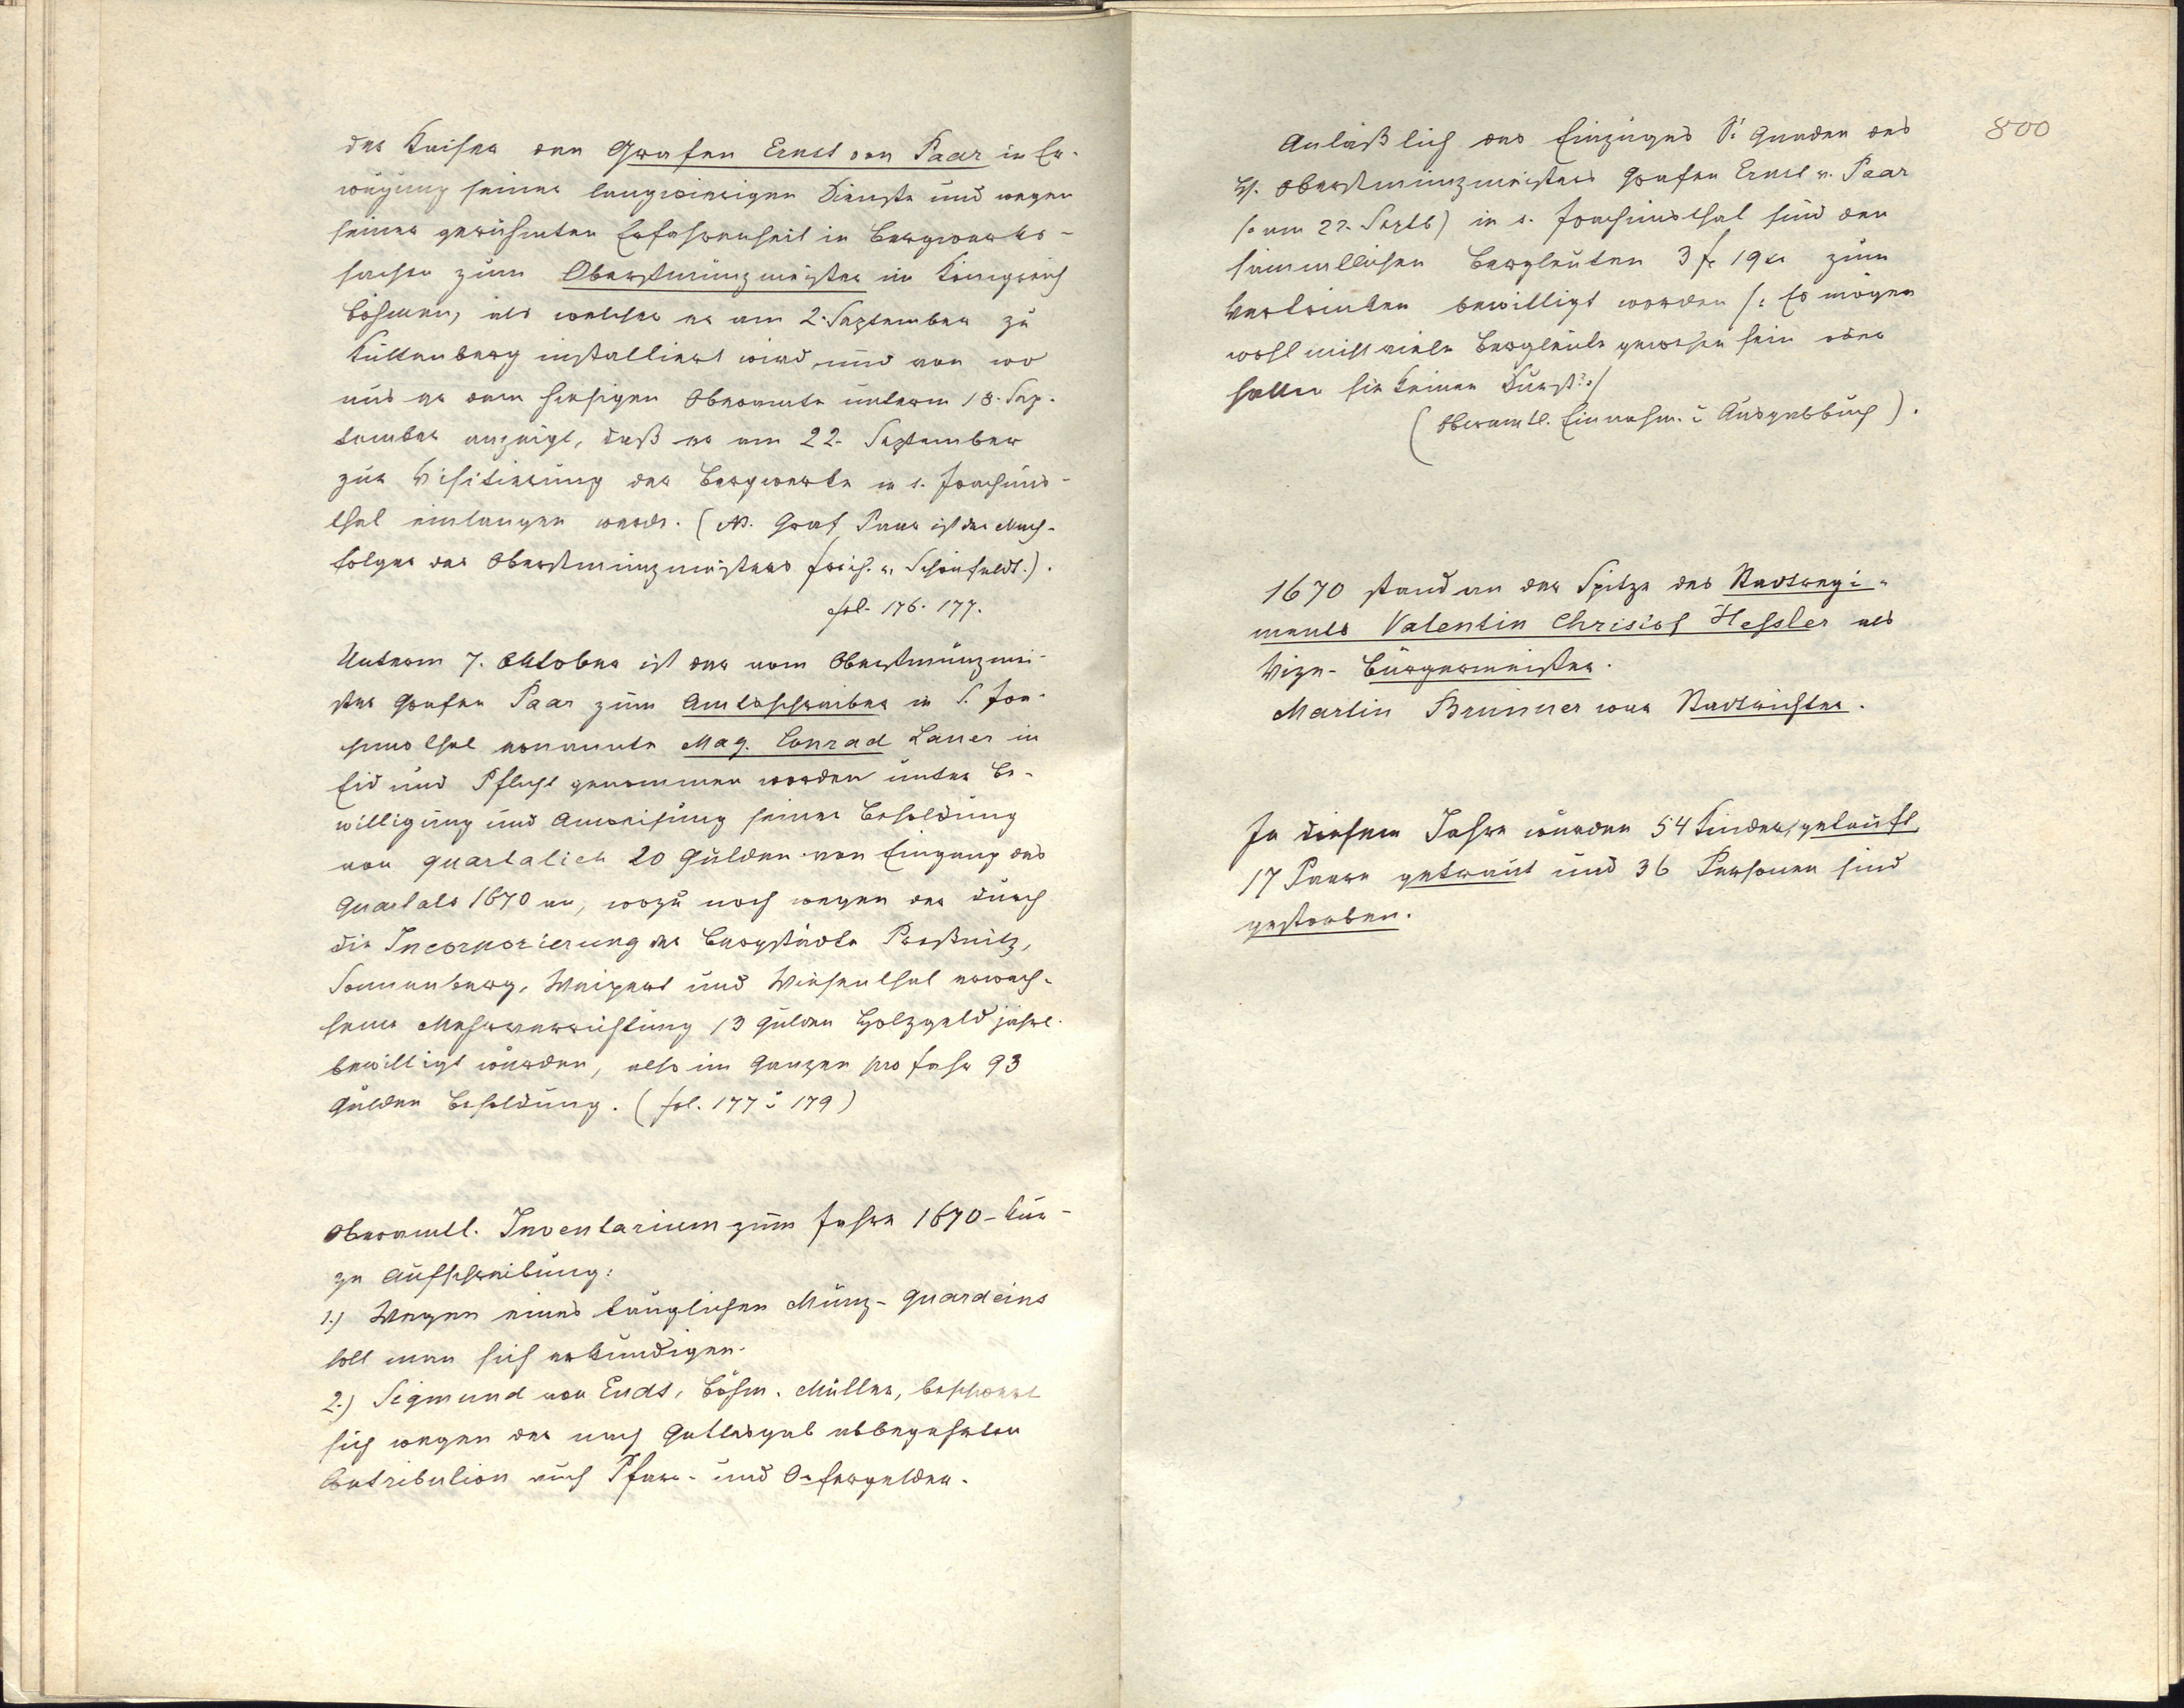 der Kaiser den Grafen Ernst von Paar in Er-
wägung seiner langwierigen Dienste und wegen
seiner gerühmten Erfahrenheit in Bergwerks-
sachen zum Oberstmünzmeister im Königreich
Böhmen, als welcher er am 2. September zu
Kuttenberg installiert wird und von wo
aus er dem hiesigen Oberamte unterm 18. Sep-
tember anzeigt, daß er am 22. September
zur Visitierung der Bergwerke in s. Joachims-
thal einlangen werde. (NB. Graf Paar ist der Nach-
folger des Oberstmünzmeisters Frieh. v. Schönfeldt.).
fol. 176. 177.
Unterm 7. Oktober ist der vom Oberstmünzmei-
ster Grafen Paar zum Amtsschreiber in S. Joa-
chimsthal ernannte Mag. Conrad Lauer in
Eid und Pflicht genommen worden unter Be-
willigung und Anweisung seiner Besoldung
von quartalich 20 Gulden von Eingang des
Quartals 1670 an, wozu noch wegen der durch
die Incorporierung der Bergstädte Preßnitz,
Sonnenberg, Weipert und Wiesenthal erwach-
sene Mehrverrichtung 13 Gulden Holzgeld jährl.
bewilligt wurden, also im Ganzen pro Jahr 93
Gulden Besoldung. (fol. 177 u 179)
Oberamtl. Inventarium zum Jahre 1670 - Kur-
ze Aufschreibung:
1.) Wegen eines tauglichen Münz-Quardeins
soll man sich erkundigen.
2.) Sigmund von Endt, böhm. Müller, beschwert
sich wegen der nach Gottesgab abbegehrten
Contribution auch Pfarr- und Opfergelder.
800
Anläßlich des Einzuges Sr Gnaden des
H. Oberstmünzmeisters Grafen Ernst v. Paar
/: am 22. Septb) in s. Joachimsthal sind den
sämmtlichen Bergleuten 3 f. 19 xr zum
Vertrinken bewilligt worden /: Es mögen
wohl nicht viele Bergleute gewesen sein oder
hatten sie keinen Durst? :/
(Oberamtl. Einnahm. u Ausgabbuch).
1670 stand an der Spitze des Stadtregi-
ments Valentin Christof Hessler als
Vize-Bürgermeister.
Martin Brunner war Stadtrichter.
In diesem Jahre wurden 54 Kinder getauft,
17 Paare getraut und 36 Personen sind
gestorben.